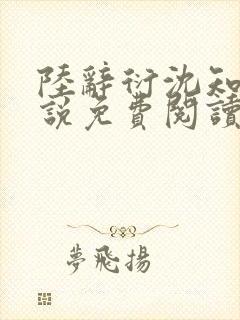 陸辭衍沈知
說免費閱讀
夢飛揚